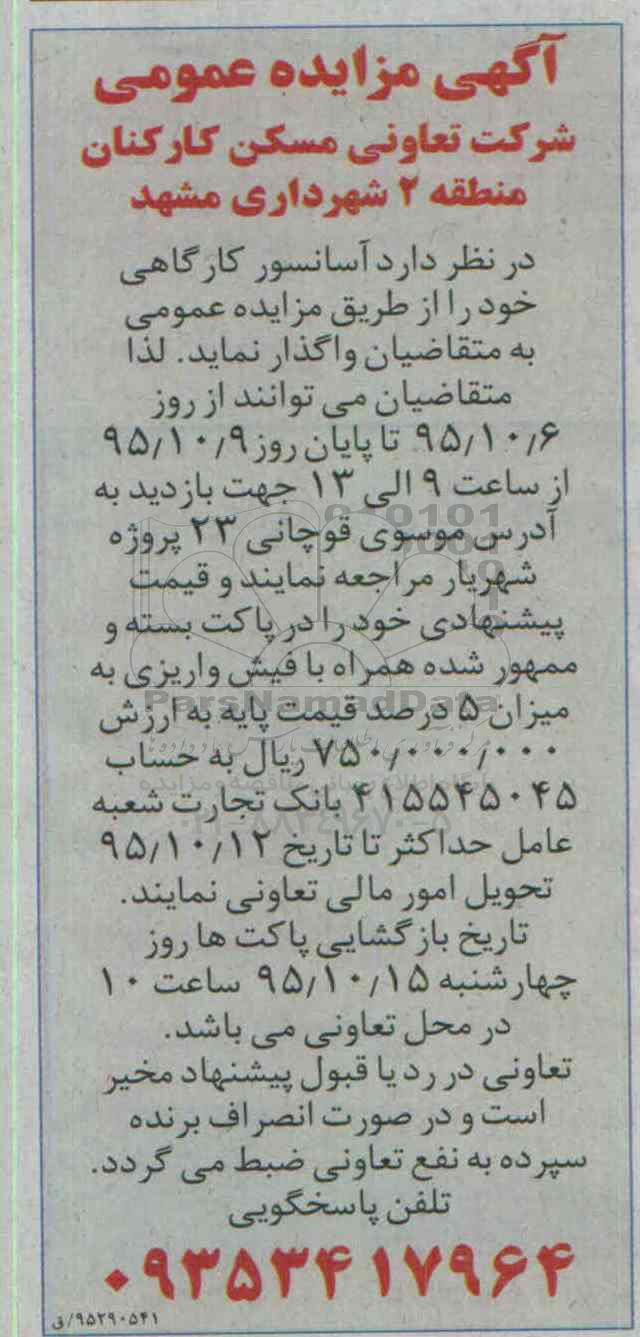 آگهی مزایده عمومی
شرکت تعاونی مسکن کارکنان
منطقه ۲ شهرداری مشهد
در نظر دارد آسانسور کارگاهی
خود را از طریق مزایده عمومی
به متقاضیان واگذار نماید. لذا
متقاضیان می توانند از روز
۹۵/۱۰/۶ تا پایان روز ۹۵/۱۰/۹
از ساعت ۹ الی ۱۳ جهت بازدید به
آدرس موسوی قوچانی ۲۳ پروژه
شهریار مراجعه نمایند و قیمت
پیشنهادی خود را در پاکت بسته و
ممهور شده همراه با فیش واریزی به
ParsNamadData
میزان ۵ درصد قیمت پایه به ارزش
۷۵۰/۰۰۰/۰۰۰ ریال به حساب
۴۱۵۵۴۵۰۴۵ بانک تجارت شعبه
عامل حداکثر تا تاریخ ۹۵/۱۰/۱۲
تحویل امور مالی تعاونی نمایند.
تاریخ بازگشایی پاکت ها روز
چهارشنبه ۹۵/۱۰/۱۵ ساعت ۱۰
در محل تعاونی می باشد.
تعاونی در رد یا قبول پیشنهاد مخیر
است و در صورت انصراف برنده
سپرده به نفع تعاونی ضبط می گردد.
تلفن پاسخگویی
۰۹۳۵۳۴۱۷۹۶۴
۹۵۲۹۰۵۴۱/ق